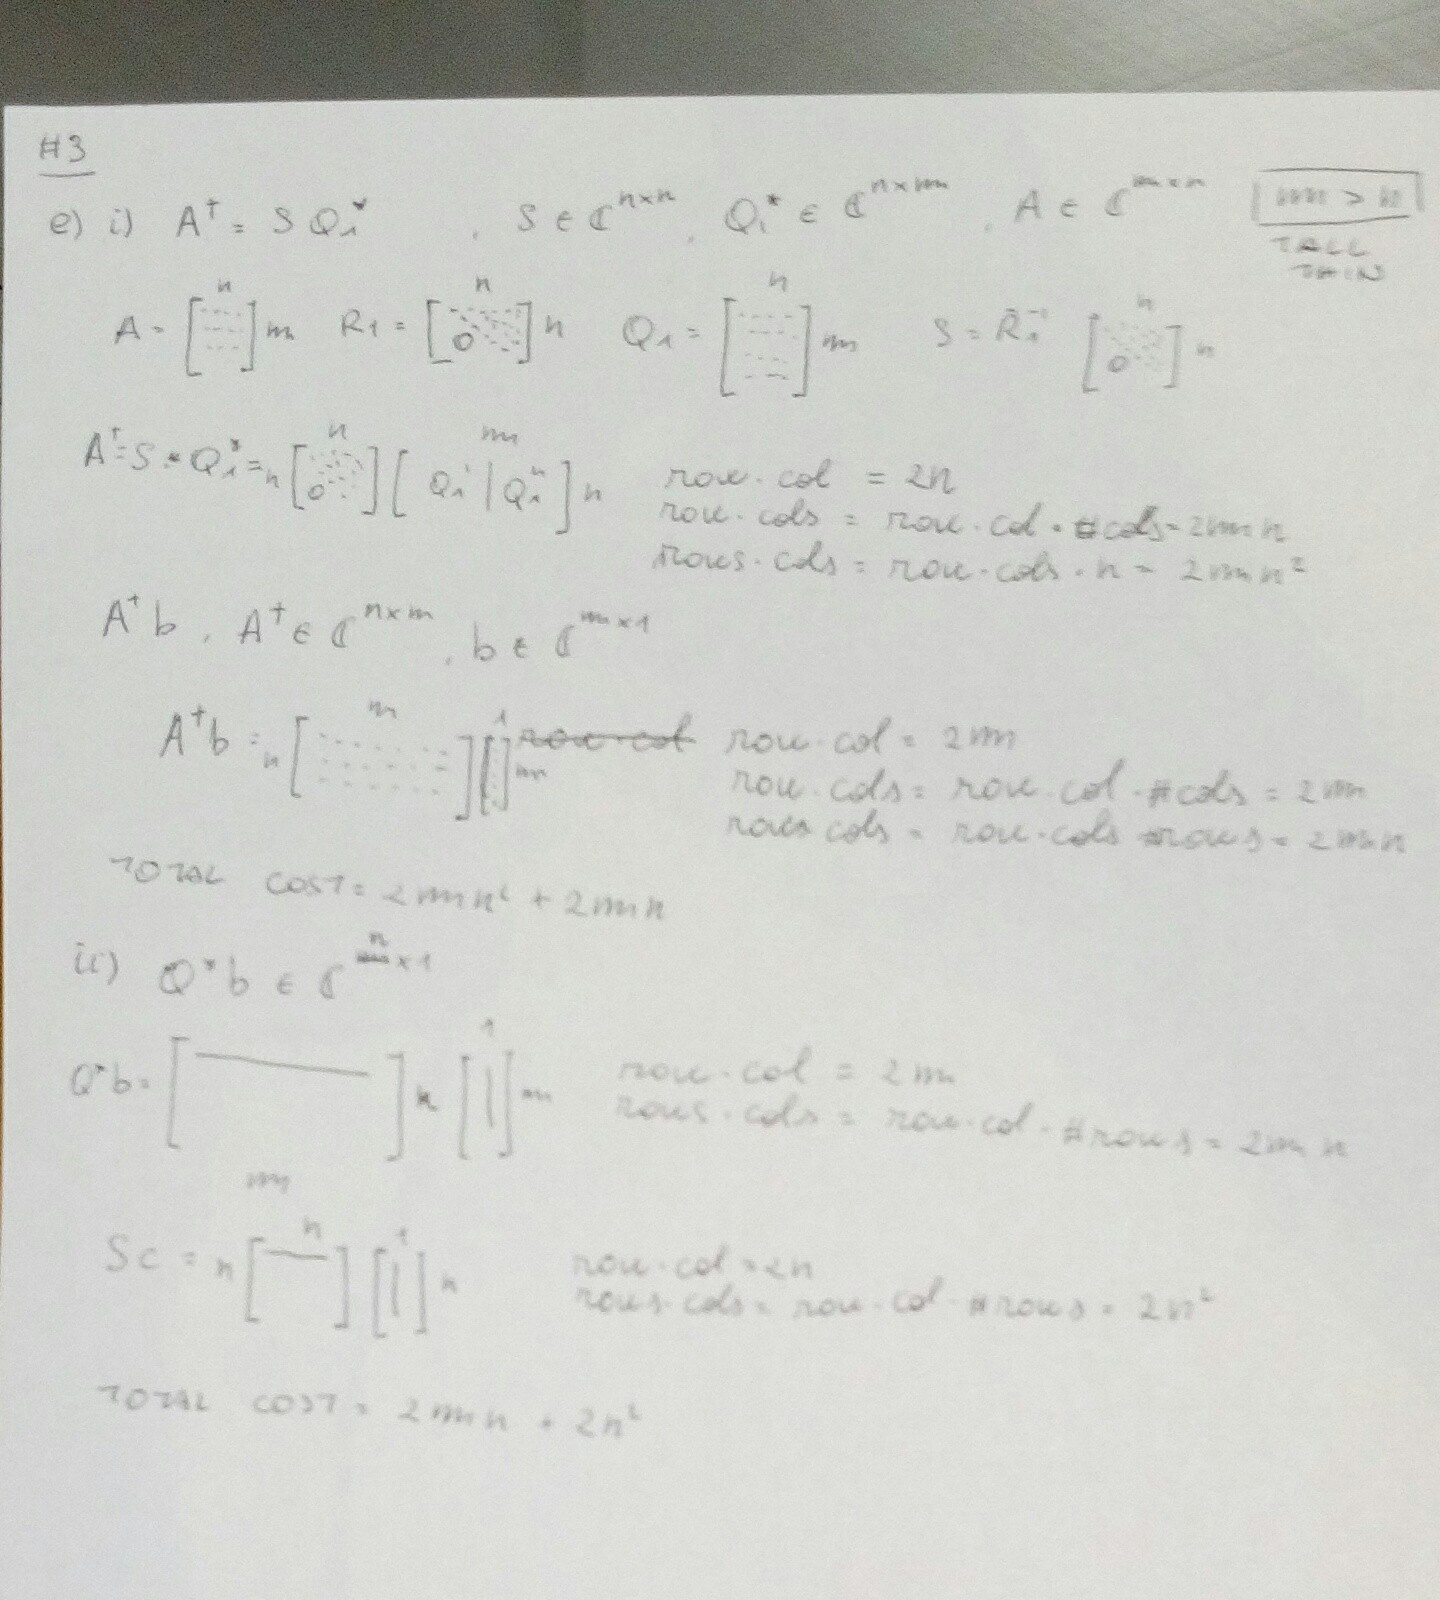 #3
e) i) A† = S Q₁* , S ∈ ℂⁿˣⁿ , Q₁* ∈ ℂⁿˣᵐ , A ∈ ℂᵐˣⁿ m > n
TALL
THIN
A = [ ] m n R1 = [ 0 ] n n Q1 = [ ] m n S = R₁⁻¹ [ 0 ] n n
A† = S · Q₁* = n [ 0 ] n [ Q₁ | Q₁ ] n m row · col = 2n
row · cols = row · col · #cols = 2mn
rows · cols = row · cols · n = 2mn²
A†b , A† ∈ ℂⁿˣᵐ , b ∈ ℂᵐˣ¹
A†b = n [ ] m [ ] m 1 row · col = 2m
row · cols = row · col · #cols = 2m
rows cols = row · cols #rows = 2mn
TOTAL COST = 2mn² + 2mn
ii) Q*b ∈ ℂⁿˣ¹
Q*b = [ ] n m [ ] m 1 row · col = 2m
rows · cols = row · col · #rows = 2mn
Sc = n [ ] n [ ] n 1 row · col = 2n
rows · cols = row · col · #rows = 2n²
TOTAL COST = 2mn + 2n²